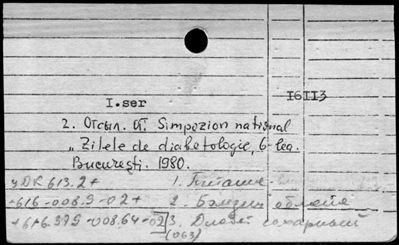 I.ser 16113
2. Отсыл. от. Simpozion national
„Zilele de diabetologie, 6-lea.
București. 1980.
УДК 613.2+ 1. Питание
+616-008.9-02+ 2.
+616.379-008.64-02 3. Диабет сахарный
(063)